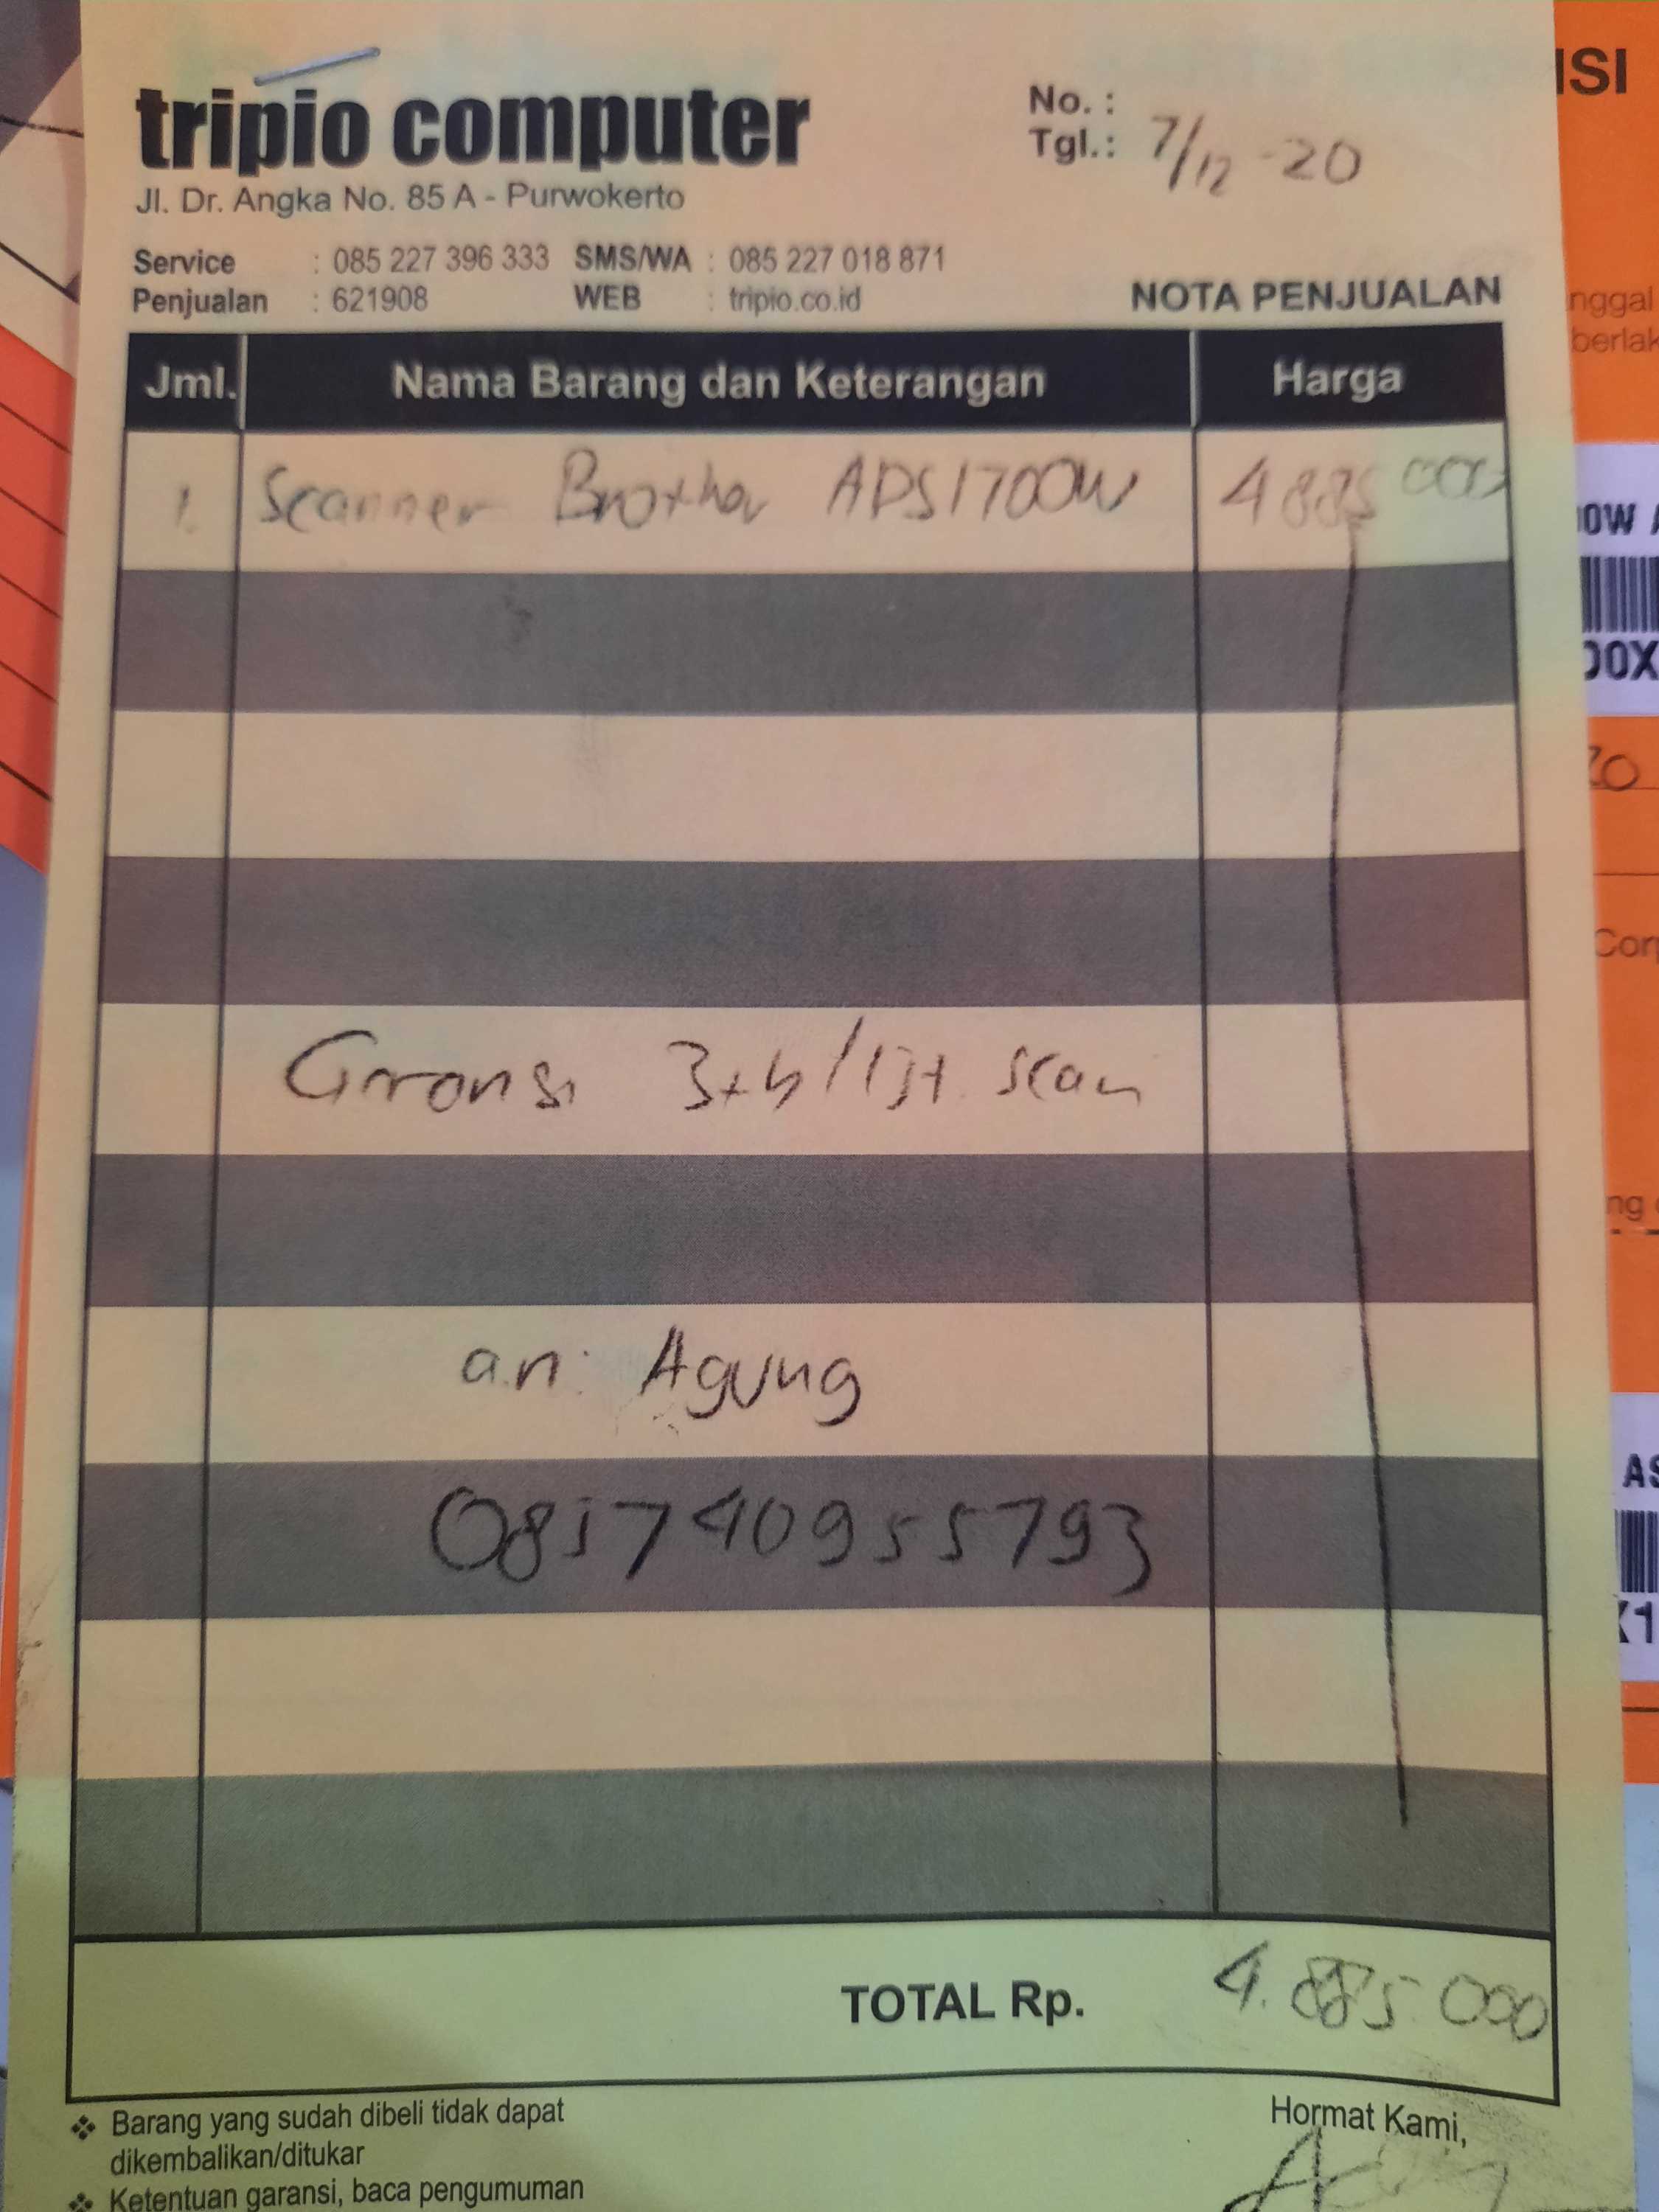 tripio computer
Jl. Dr. Angka No. 85 A - Purwokerto
No. :
Tgl.: 7/12 -20
Service : 085 227 396 333 SMS/WA : 085 227 018 871
Penjualan : 621908 WEB : tripio.co.id
NOTA PENJUALAN
Jml. Nama Barang dan Keterangan Harga
1. Scanner Brother ADS1700W 4885 000
3th/1jt scan
an: Agung
085740955793
TOTAL Rp. 4.885.000
❖ Barang yang sudah dibeli tidak dapat
dikembalikan/ditukar
❖ Ketentuan garansi, baca pengumuman
Hormat Kami,
ISI
nggal
berlak
00W
00X
20
ng
AS
X1